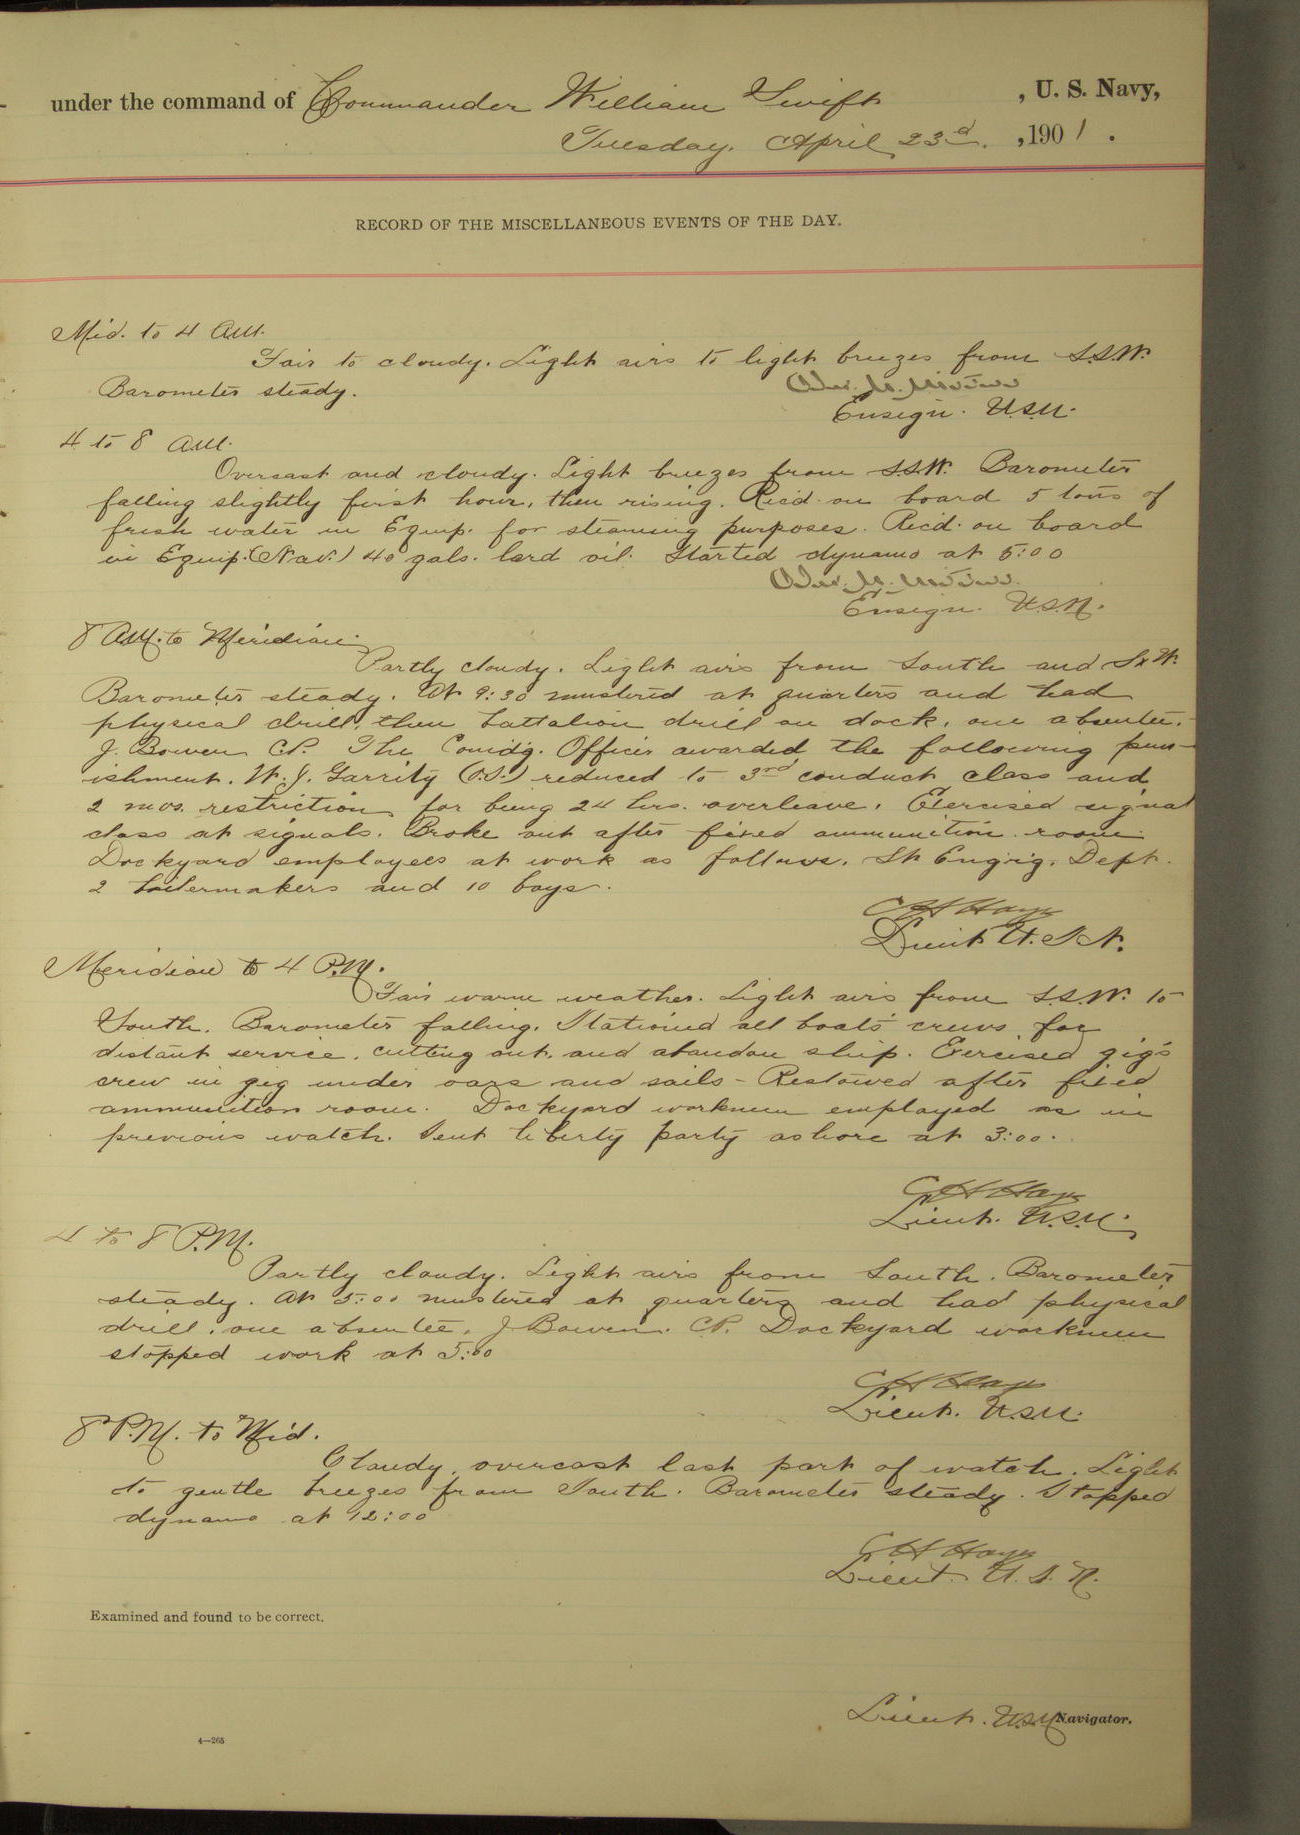 under the command of Commander William Swift, U. S. Navy,
Tuesday, April 23d, 1901.
RECORD OF THE MISCELLANEOUS EVENTS OF THE DAY.
Mid. to 4 A.M.
Fair to cloudy. Light airs to light breezes from S.S.W.
Barometer steady.
Ensign. U.S.N.
4 to 8 A.M.
Overcast and cloudy. Light breezes from S.S.W. Barometer
falling slightly first hour, then rising. Rec'd. on board 5 tons of
fresh water in Equip. for steaming purposes. Rec'd. on board
in Equip. (Nav.) 40 gals. lard oil. Started dynamo at 5:00
Ensign. U.S.N.
8 A.M. to Meridian.
Partly cloudy. Light airs from South and SxW.
Barometer steady. At 9:30 mustered at quarters and had
physical drill, then battalion drill on dock, one absentee,
J. Bowen CP. The Comd'g. Officer awarded the following pun-
ishment. W. J. Garrity (O.S.) reduced to 3rd conduct class and
2 mos. restriction for being 24 hrs. overleave. Exercised signal
class at signals. Broke out after fixed ammunition room.
Dockyard employees at work as follows. St. Eng'r'g. Dept.
2 boilermakers and 10 boys.
C H Hayes
Lieut U.S.N.
Meridian to 4 P.M.
Fair warm weather. Light airs from S.S.W. to
South. Barometer falling. Stationed all boats' crews for
distant service, cutting out, and abandon ship. Exercised gig's
crew in gig under oars and sails - Restowed after fixed
ammunition room. Dockyard workmen employed as in
previous watch. Sent liberty party ashore at 3:00.
C H Hayes
Lieut. U.S.N.
4 to 8 P.M.
Partly cloudy. Light airs from South. Barometer
steady. At 5:00 mustered at quarters and had physical
drill, one absentee, J Bowen. CP. Dockyard workmen
stopped work at 5:00
C H Hayes
Lieut. U.S.N.
8 P.M. to Mid.
Cloudy, overcast last part of watch. Light
to gentle breezes from South. Barometer steady. Stopped
dynamo at 12:00
C H Hayes
Lieut. U.S.N.
Examined and found to be correct.
Lieut. U.S.N. Navigator.
4—265